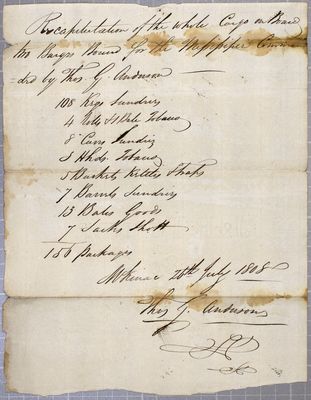 Recapitulation of the whole Cargo on Board
two Barges Bound for the Missisippi Comm
ded by Thos. G. Anderson
108 Kegs Sundries
4 Rolls 1 Bale Tobacco
8 Cases Sundries
3 Hhds. Tobacco
5 Baskets Kettles Traps
7 Barrels Sundries
13 Bales Goods
7 Sacks Shott
156 packages
McKinac 26th July 1808
Thos G. Anderson